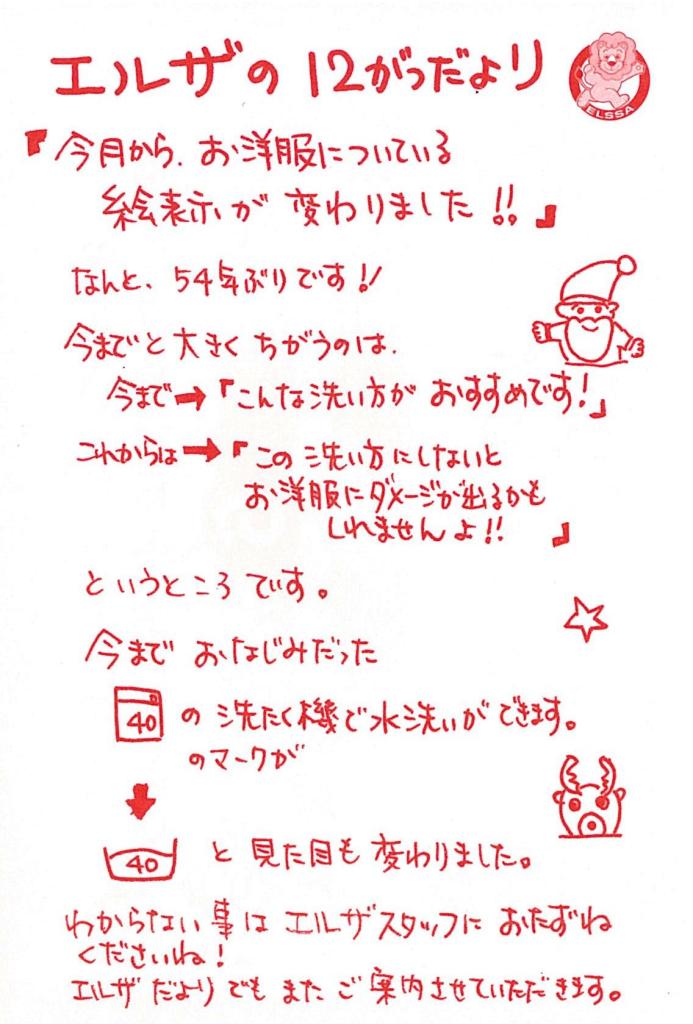 エルザの 12がつだより
ELSSA
『今月から、お洋服についている
絵表示が 変わりました!!』
なんと、54年ぶりです!!
今までと大きく ちがうのは、
今まで→『こんな洗い方が おすすめです!』
これからは→『この洗い方にしないと
お洋服にダメージが出るかも
しれませんよ!! 』
というところです。
今まで おなじみだった
40 の 洗たく機で水洗いができます。
のマークが
40 と 見た目も 変わりました。
わからない事は エルザスタッフに おたずね
くださいね!
エルザだよりでもまた ご案内させていただきます。